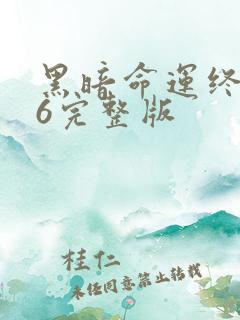 黑暗命运终
6完整版
桂仁
未经同意禁止转载